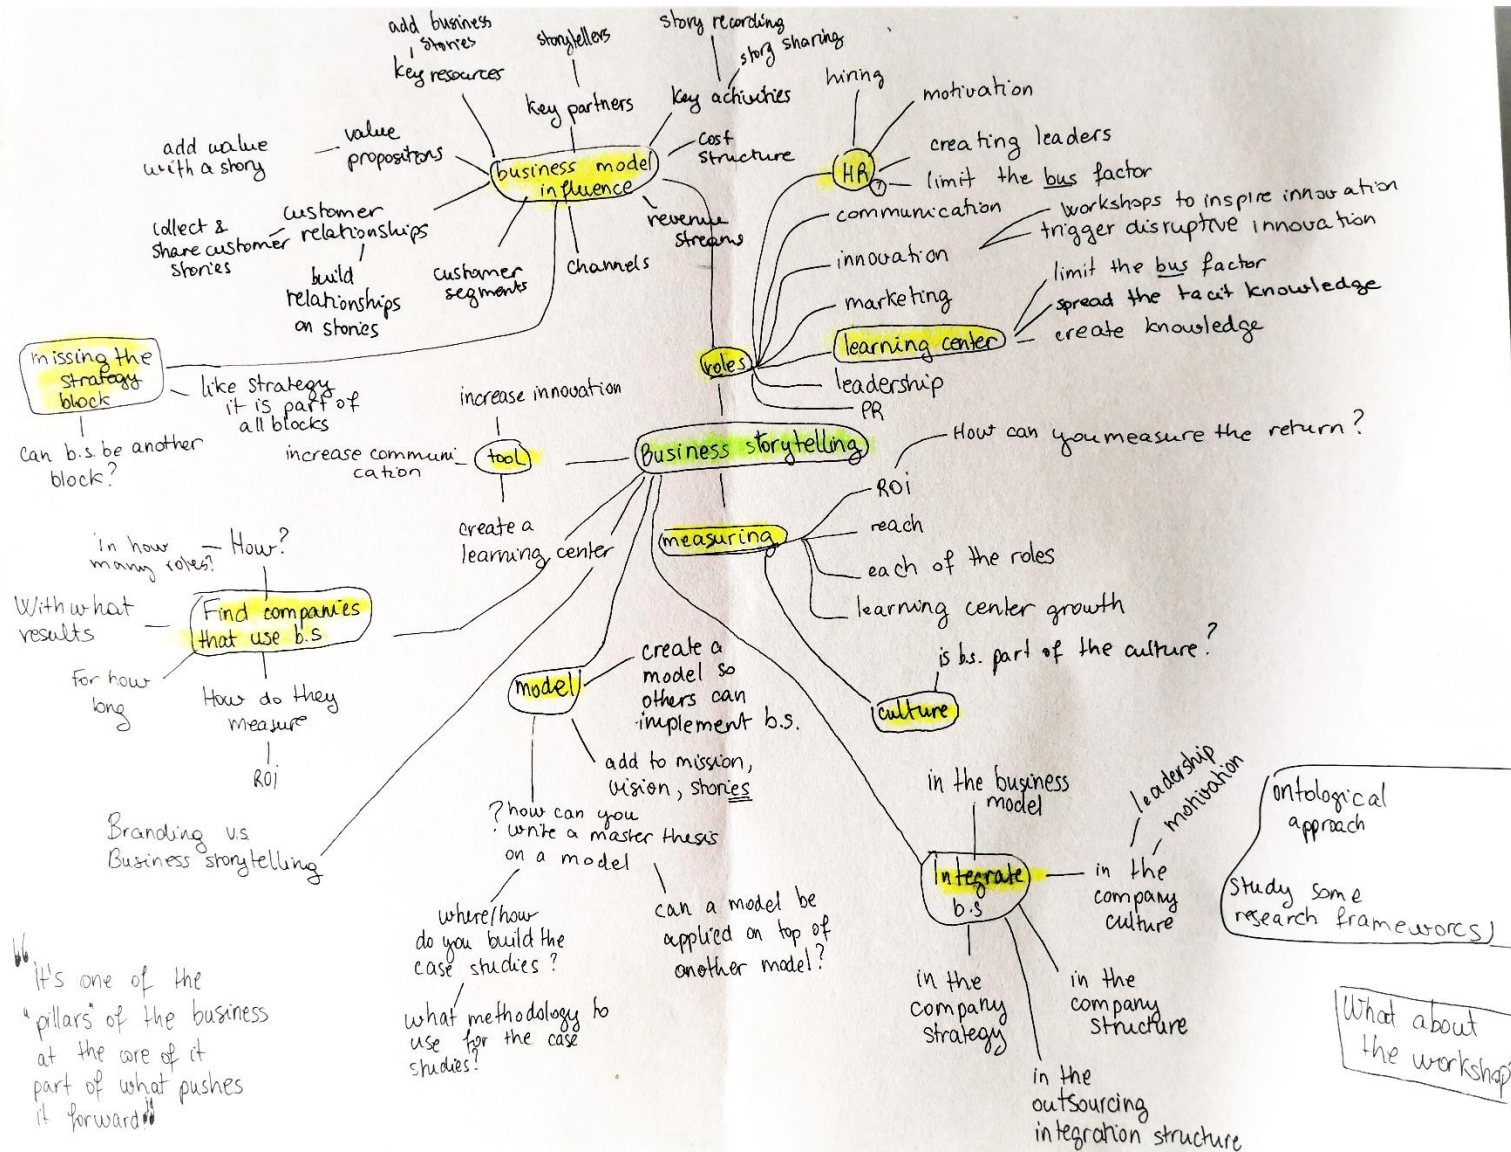 add business
stories
key resources
storytellers
key partners
story recording
story sharing
key activities
cost
structure
add value
with a story
value
propositons
business model
influence
collect &
share customer
stories
customer
relationships
build
relationships
on stories
customer
segments
channels
revenue
streams
hiring
motivation
HR
creating leaders
limit the bus factor
communication
innovation
workshops to inspire innovation
trigger disruptive innovation
marketing
learning center
limit the bus factor
spread the tacit knowledge
create knowledge
roles
leadership
PR
missing the
strategy
block
like strategy
it is part of
all blocks
can b.s. be another
block?
increase innovation
increase communi
cation
tool
create a
learning center
Business storytelling
How can you measure the return?
measuring
ROi
reach
each of the roles
learning center growth
is b.s. part of the culture?
culture
In how
many roles?
How?
With what
results
Find companies
that use b.s
For how
long
How do they
measure
ROi
model
create a
model so
others can
implement b.s.
add to mission,
vision, stories
? how can you
write a master thesis
on a model
where/how
do you build the
case studies?
what methodology to
use for the case
studies?
can a model be
applied on top of
another model?
Branding v.s
Business storytelling
in the business
model
Integrate
b.s
leadership
motivation
in the
company
culture
in the
company
strategy
in the
company
structure
in the
outsourcing
integration structure
ontological
approach
study some
research frameworcs
What about
the workshop
"it's one of the
"pillars" of the business
at the core of it
part of what pushes
it forward"